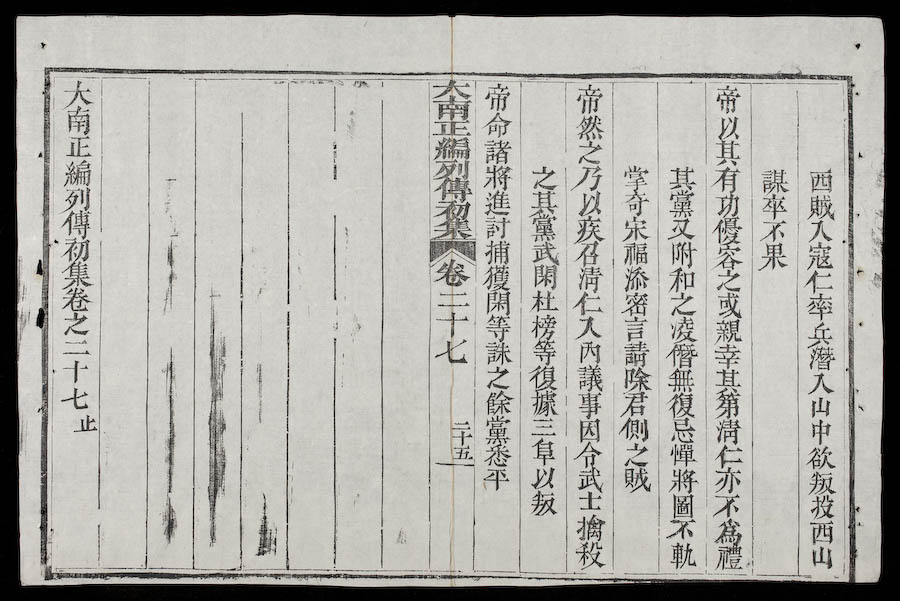 西賊入寇仁率兵潛入山中欲叛投西山
謀卒不果
帝以其有功優容之或親幸其第淸仁亦不為禮
其黨又附和之凌僭無復忌憚將圖不軌
掌奇宋福添密言請除君側之賊
帝然之乃以疾召淸仁入內議事因令武士擒殺
之其黨武閑杜榜等復據三阜以叛
帝命諸將進討捕獲閑等誅之餘黨悉平
大南正編列傳初集
卷二十七
二十五
大南正編列傳初集卷之二十七 止